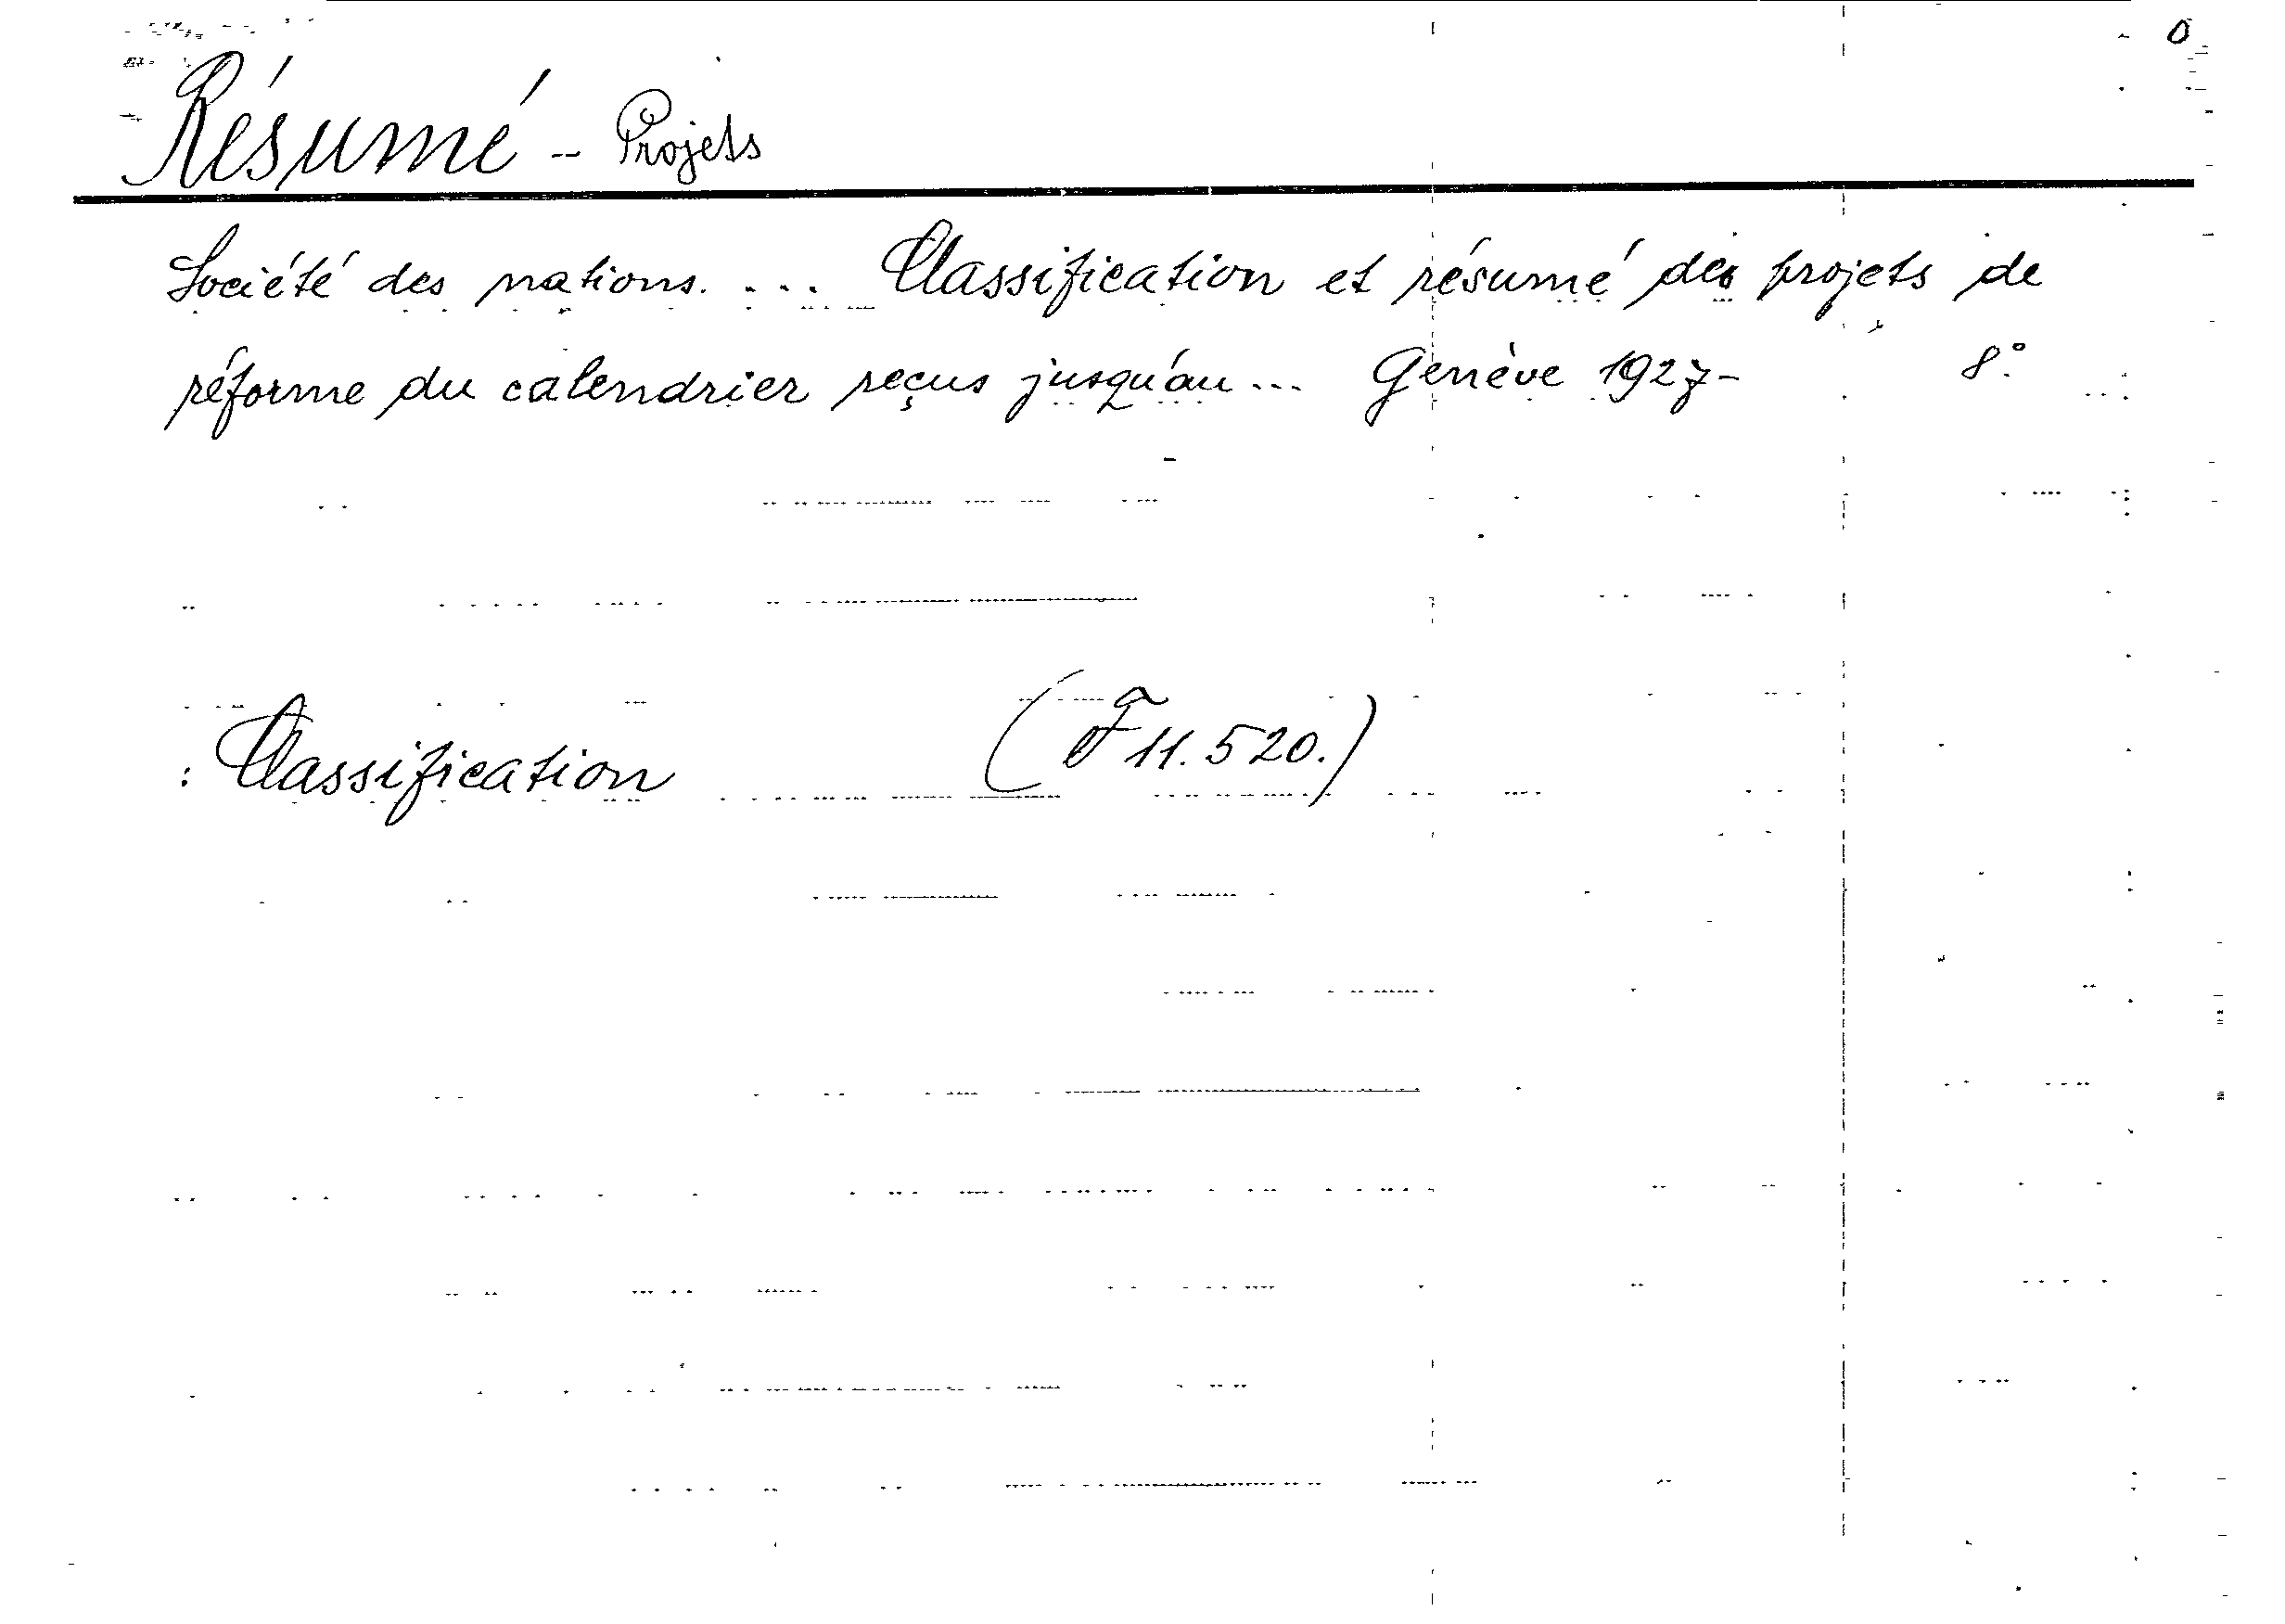 0
Résumé - Projets
Société des nations. ... Classification et résumé des projets de
réforme du calendrier reçus jusqu'au ... Genève 1927- 8°.
: Classification (F 11.520.)